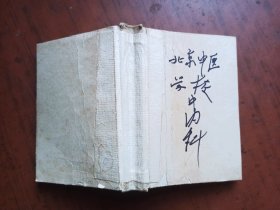 北京中医
学校
中内科